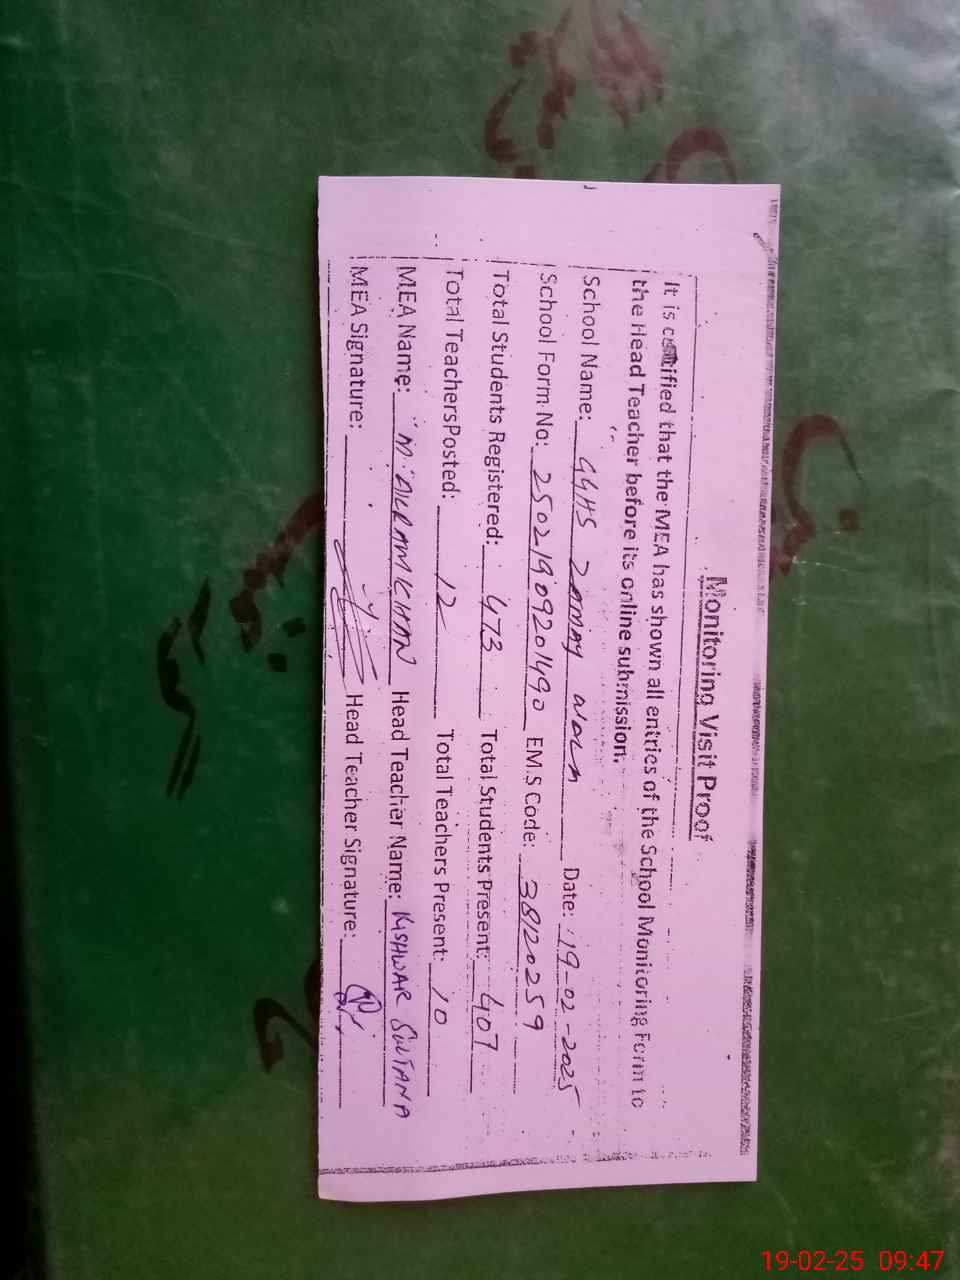 Monitoring Visit Proof
It is certified that the MEA has shown all entries of the School Monitoring Form to
the Head Teacher before its online submission.
School Name: GGHS Date: 19-02-2025
School Form No: 25021909201490 EMIS Code: 38120259
Total Students Registered: 473 Total Students Present: 407
Total Teachers Posted: 12 Total Teachers Present: 10
MEA Name: M. AKRAM KHAN Head Teacher Name: KISHWAR SULTANA
MEA Signature: Head Teacher Signature:
19-02-25 09:47